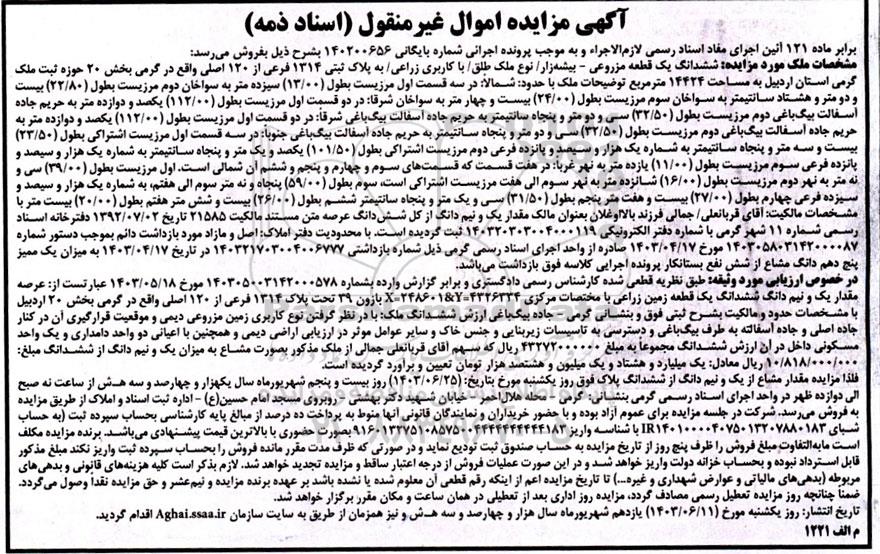 آگهی مزایده اموال غیرمنقول (اسناد ذمه)
برابر ماده ۱۲۱ آئین اجرای مفاد اسناد رسمی لازم‌الاجراء و به موجب پرونده اجرائی شماره بایگانی ۱۴۰۲۰۰۶۵۶ بشرح ذیل بفروش می‌رسد:
مشخصات ملک مورد مزایده: ششدانگ یک قطعه مزروعی - بیشه‌زار/ نوع ملک طلق/ با کاربری زراعی/ به پلاک ثبتی ۱۳۱۴ فرعی از ۱۲۰ اصلی واقع در گرمی بخش ۲۰ حوزه ثبت ملک
گرمی استان اردبیل به مساحت ۱۴۴۲۴ مترمربع توضیحات ملک با حدود: شمالاً: در سه قسمت اول مرزیست بطول (۱۳/۰۰) سیزده متر به سواخان دوم مرزیست بطول (۲۲/۸۰) بیست
و دو متر و هشتاد سانتیمتر به سواخان سوم مرزیست بطول (۲۴/۰۰) بیست و چهار متر به سواخان شرقا: در دو قسمت اول مرزیست بطول (۱۱۲/۰۰) یکصد و دوازده متر به حریم جاده
آسفالت بیگ‌باغی دوم مرزیست بطول (۳۲/۵۰) سی و دو متر و پنجاه سانتیمتر به حریم جاده آسفالت بیگ‌باغی شرقا: در دو قسمت اول مرزیست بطول (۱۱۲/۰۰) یکصد و دوازده متر به
حریم جاده آسفالت بیگ‌باغی دوم مرزیست بطول (۳۲/۵۰) سی و دو متر و پنجاه سانتیمتر به حریم جاده آسفالت بیگ‌باغی جنوباً: در سه قسمت اول مرزیست اشتراکی بطول (۲۳/۵۰)
بیست و سه متر و پنجاه سانتیمتر به شماره یک هزار و سیصد و پانزده فرعی دوم مرزیست اشتراکی بطول (۱۰۱/۵۰) یکصد و یک متر و پنجاه سانتیمتر به شماره یک هزار و سیصد و
پانزده فرعی سوم مرزیست بطول (۱۱/۰۰) یازده متر به نهر غربا: در هفت قسمت که قسمت‌های سوم و چهارم و پنجم و ششم آن شمالی است. اول مرزیست بطول (۳۹/۰۰) سی و
نه متر به نهر دوم مرزیست بطول (۱۶/۰۰) شانزده متر به نهر سوم الی هفت مرزیست اشتراکی است، سوم بطول (۵۹/۰۰) پنجاه و نه متر سوم الی هفتم، به شماره یک هزار و سیصد و
سیزده فرعی چهارم بطول (۲۷/۰۰) بیست و هفت متر پنجم بطول (۳۱/۵۰) سی و یک متر و پنجاه سانتیمتر ششم بطول (۲۶/۰۰) بیست و شش متر هفتم بطول (۲۰/۰۰) بیست متر با
مشخصات مالکیت: آقای قربانعلی/ جمالی فرزند بالااوغلان بعنوان مالک مقدار یک و نیم دانگ از کل شش‌دانگ عرصه متن مستند مالکیت ۲۱۵۸۵ تاریخ ۱۳۹۲/۰۷/۰۲ دفترخانه اسناد
رسمی شماره ۱۱ شهر گرمی با شماره دفتر الکترونیکی ۱۴۰۳۲۰۳۰۳۰۰۴۰۰۰۱۱۹ ثبت گردیده است. با محدودیت دفتر املاک: اصل و مازاد مورد بازداشت دائم بموجب دستور شماره
۱۴۰۳۰۵۸۰۳۱۴۲۰۰۰۰۸۷ مورخ ۱۴۰۳/۰۴/۱۷ صادره از واحد اجرای اسناد رسمی گرمی ذیل شماره بازداشتی ۱۴۰۳۲۱۷۰۳۰۰۴۰۰۶۷۷۷ در تاریخ ۱۴۰۳/۰۴/۱۷ به میزان یک ممیز
پنج دهم دانگ مشاع از شش نفع بستانکار پرونده اجرایی کلاسه فوق بازداشت می‌باشد.
در خصوص ارزیابی مورد وثیقه: طبق نظریه قطعی شده کارشناس رسمی دادگستری و برابر گزارش وارده بشماره ۱۴۰۳۰۵۰۰۳۱۴۲۰۰۰۵۷۸ مورخ ۱۴۰۳/۰۵/۱۸ عبارتست از: عرصه
مقدار یک و نیم دانگ ششدانگ یک قطعه زمین زراعی با مختصات مرکزی X=۲۴۸۶۰۱&Y=۴۳۲۶۳۳۴ بازون ۳۹ تحت پلاک ۱۳۱۴ فرعی از ۱۲۰ اصلی واقع در گرمی بخش ۲۰ اردبیل
با مشخصات حدود و مالکیت بشرح ثبتی فوق و بنشانی گرمی - جاده بیگ‌باغلو ارزش ششدانگ ملک: با در نظر گرفتن نوع کاربری زمین مزروعی دیمی و موقعیت قرارگیری آن در کنار
جاده اصلی و جاده آسفالته به طرف بیگ‌باغی و دسترسی به تاسیسات زیربنایی و جنس خاک و سایر عوامل موثر در ارزیابی اراضی دیمی و همچنین با اعیانی دو واحد دامداری و یک واحد
مسکونی داخل در آن ارزش ششدانگ مجموعاً به مبلغ ۴۳۲۷۲۰۰۰۰۰۰ ریال که سهم آقای قربانعلی جمالی از ملک مذکور بصورت مشاع به میزان یک و نیم دانگ از ششدانگ مبلغ:
۱۰/۸۱۸/۰۰۰/۰۰۰ ریال معادل: یک میلیارد و هشتاد و یک میلیون و هشتصد هزار تومان تعیین و برآورد گردیده است.
فلذا مزایده مقدار مشاع از یک و نیم دانگ از ششدانگ پلاک فوق روز یکشنبه مورخ بتاریخ: (۱۴۰۳/۰۶/۲۵) روز بیست و پنجم شهریورماه سال یکهزار و چهارصد و سه هـ.ش از ساعت نه صبح
الی دوازده ظهر در واحد اجرای اسناد رسمی گرمی بنشانی: گرمی - محله هلال‌احمر - خیابان شهید دکتر بهشتی - روبروی مسجد امام حسین(ع) - اداره ثبت اسناد و املاک از طریق مزایده
به فروش می‌رسد. شرکت در جلسه مزایده برای عموم آزاد بوده و با حضور خریداران و نمایندگان قانونی آنها منوط به پرداخت ده درصد از مبلغ پایه کارشناسی بحساب سپرده ثبت (به حساب
شبای IR۱۴۰۱۰۰۰۰۴۰۷۵۰۱۳۲۰۷۸۸۰۱۸۳ با شناسه واریز ۹۱۶۰۱۳۲۷۵۱۰۸۵۷۵۰۰۴۴۴۴۴۴۴۴۴۴۴۱۸۳ بصورت حضوری با بالاترین قیمت پیشنهادی می‌باشد. برنده مزایده مکلف
است مابه‌التفاوت مبلغ فروش را ظرف پنج روز از تاریخ مزایده به حساب صندوق ثبت تودیع نماید و در صورتی که ظرف مدت مقرر مانده فروش را بحساب سپرده ثبت واریز نکند مبلغ مذکور
قابل استرداد نبوده و بحساب خزانه دولت واریز خواهد شد و در این صورت عملیات فروش از درجه اعتبار ساقط و مزایده تجدید خواهد شد. لازم بذکر است کلیه هزینه‌های قانونی و بدهی‌های
مربوطه (بدهی‌های مالیاتی و عوارض شهداری و غیره...) تا تاریخ مزایده اعم از اینکه رقم قطعی آن معلوم شده یا نشده باشد بر عهده برنده مزایده و نیم‌عشر و حق مزایده نقدا وصول می‌گردد.
ضمنا چنانچه روز مزایده تعطیل رسمی مصادف گردد، مزایده روز اداری بعد از تعطیلی در همان ساعت و مکان مقرر برگزار خواهد شد.
تاریخ انتشار: روز یکشنبه مورخ (۱۴۰۳/۰۶/۱۱) یازدهم شهریورماه سال هزار و چهارصد و سه هـ.ش و نیز همزمان از طریق به سایت سازمان Aghai.ssaa.ir اقدام گردید.
م الف ۱۲۲۱